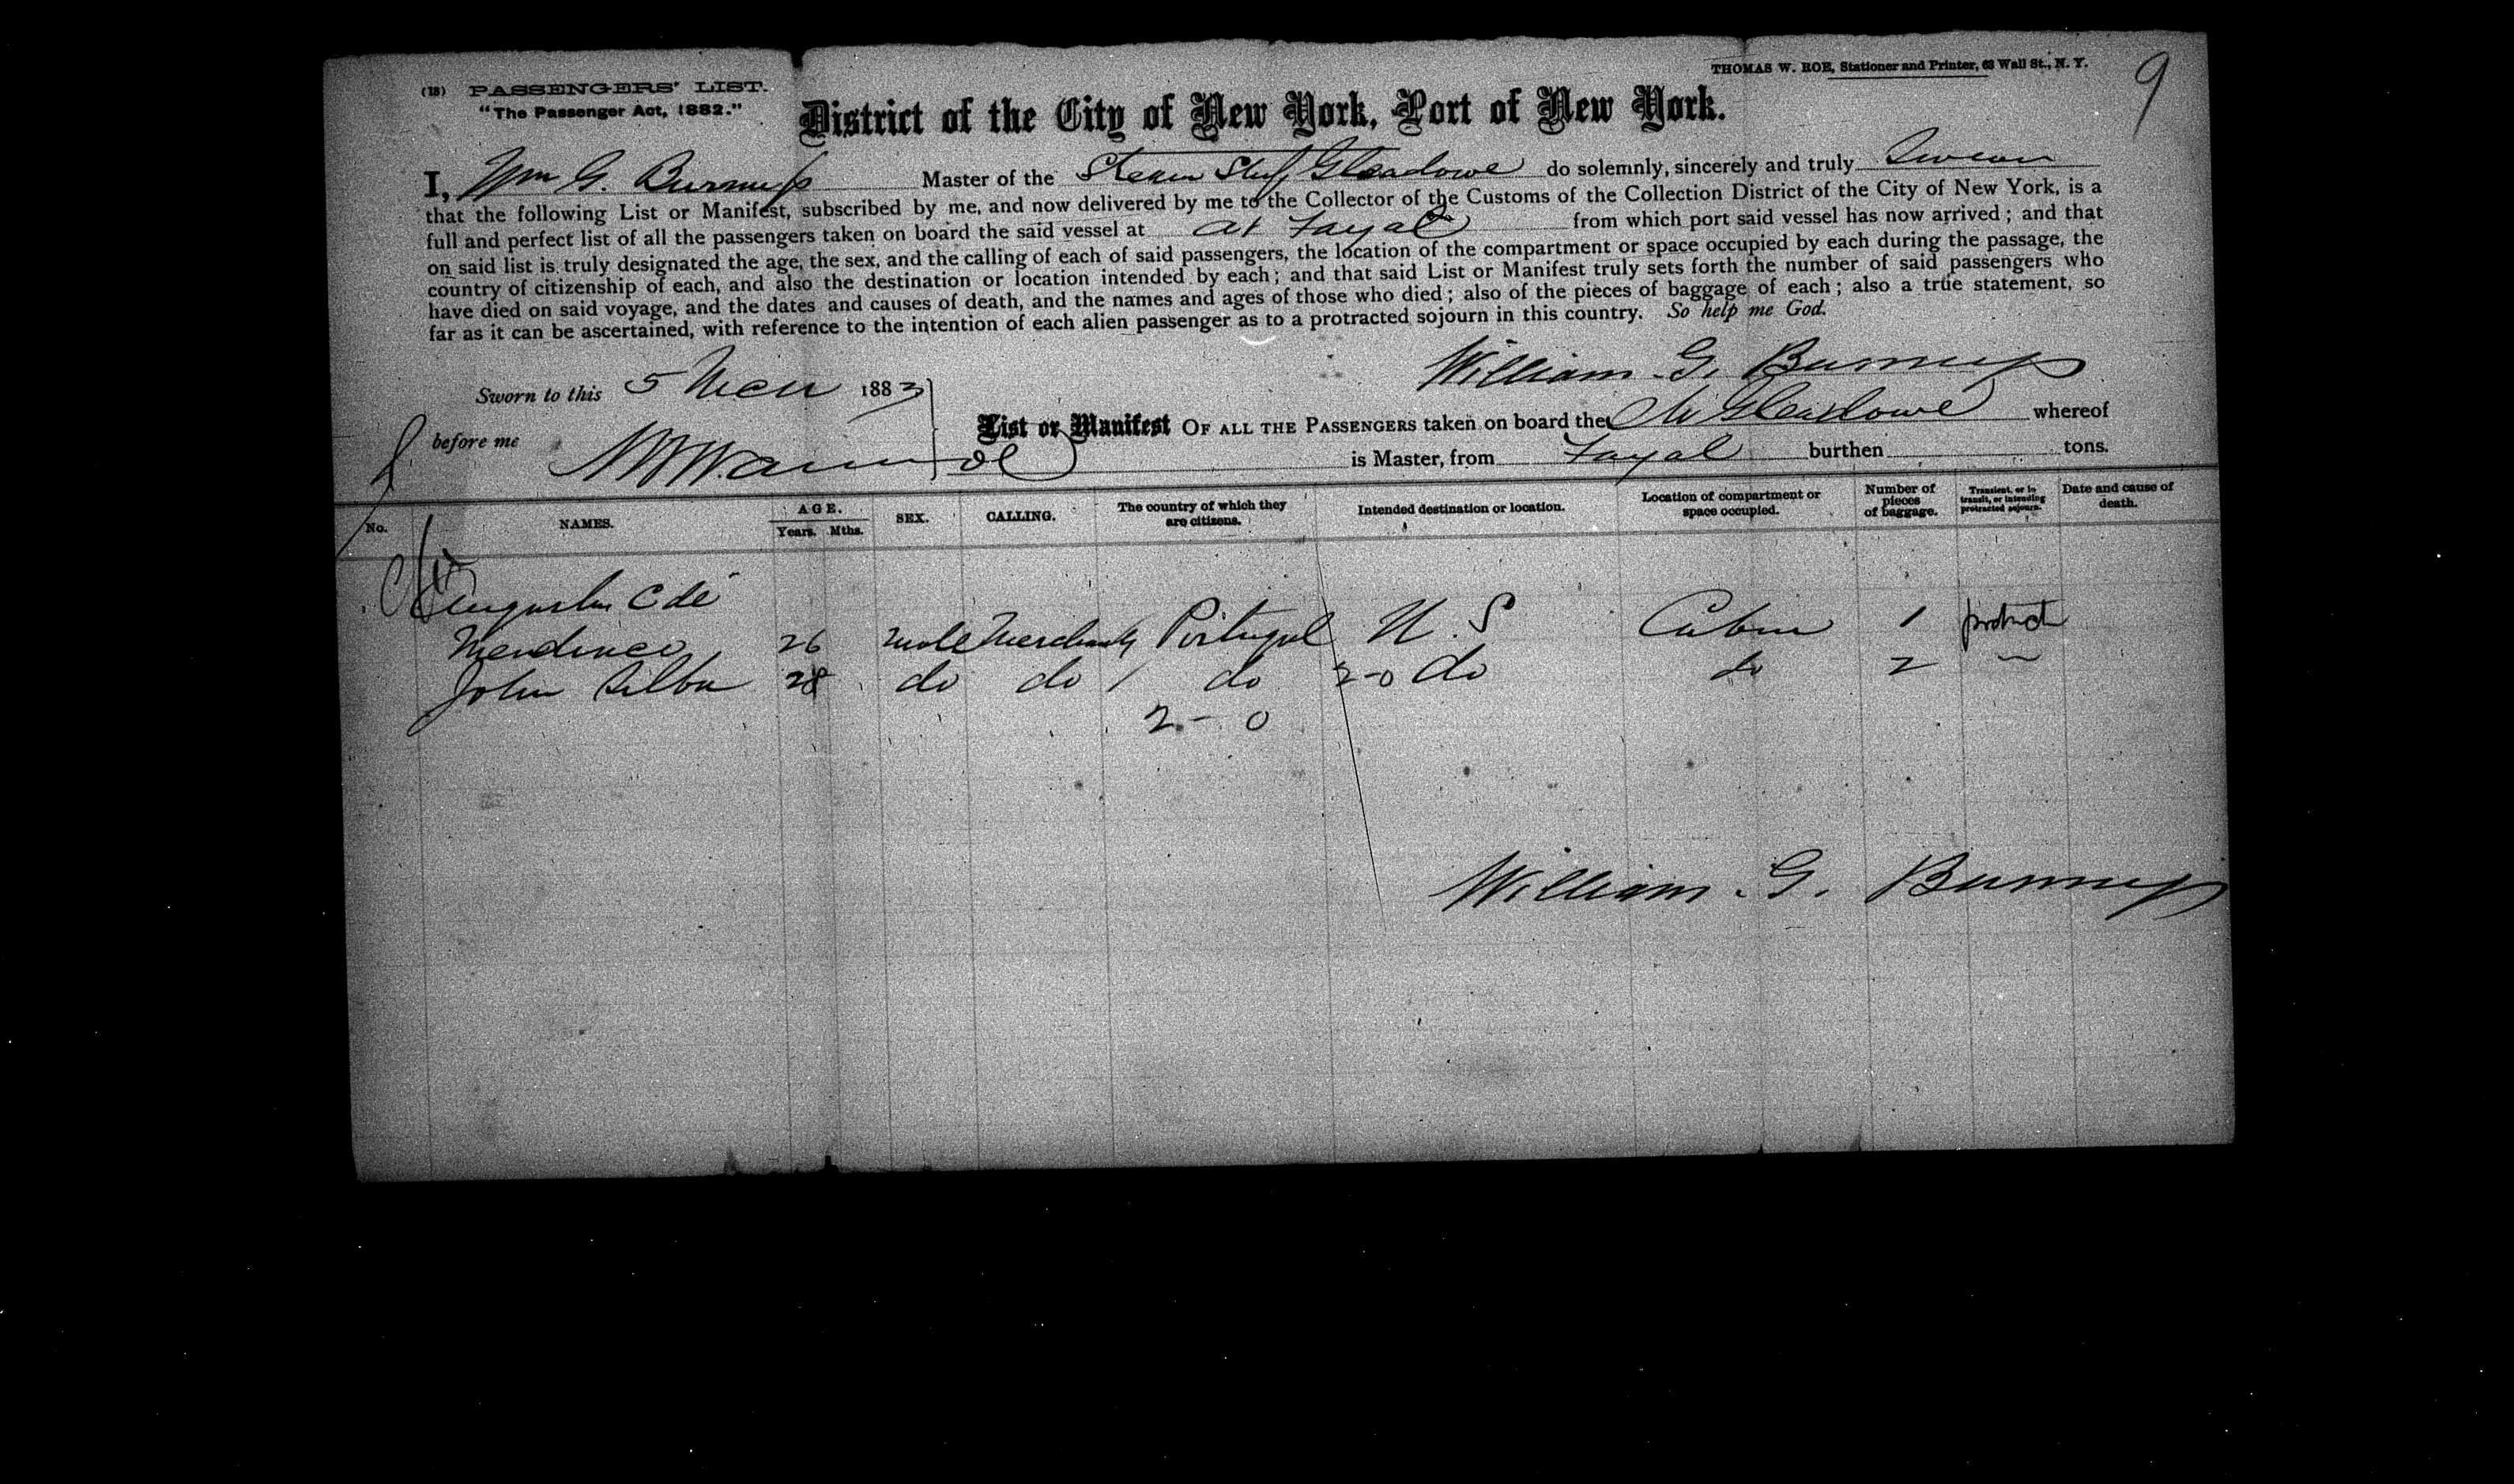 (18) PASSENGERS' LIST.
"The Passenger Act, 1882."
THOMAS W. ROE, Stationer and Printer, 63 Wall St., N. Y.
9
District of the City of New York, Port of New York.
I, Wm G. Burnup Master of the Steam Ship Gleadowe do solemnly, sincerely and truly Swear
that the following List or Manifest, subscribed by me, and now delivered by me to the Collector of the Customs of the Collection District of the City of New York, is a
full and perfect list of all the passengers taken on board the said vessel at at Fayal from which port said vessel has now arrived; and that
on said list is truly designated the age, the sex, and the calling of each of said passengers, the location of the compartment or space occupied by each during the passage, the
country of citizenship of each, and also the destination or location intended by each; and that said List or Manifest truly sets forth the number of said passengers who
have died on said voyage, and the dates and causes of death, and the names and ages of those who died; also of the pieces of baggage of each; also a true statement, so
far as it can be ascertained, with reference to the intention of each alien passenger as to a protracted sojourn in this country. So help me God.
William G. Burnup
Sworn to this 5 1883
before me
List or Manifest OF ALL THE PASSENGERS taken on board the Gleadowe whereof
is Master, from Fayal burthen tons.
No. NAMES. AGE. Years. Mths. SEX. CALLING. The country of which they are citizens. Intended destination or location. Location of compartment or space occupied. Number of pieces of baggage. Transient, or in transit, or intending protracted sojourn. Date and cause of death.
C de
26 male Merchant Portugal U. S Cabin 1 protract
John Silva 28 do do do 2-0 do do 2
2 - 0
William G. Burnup